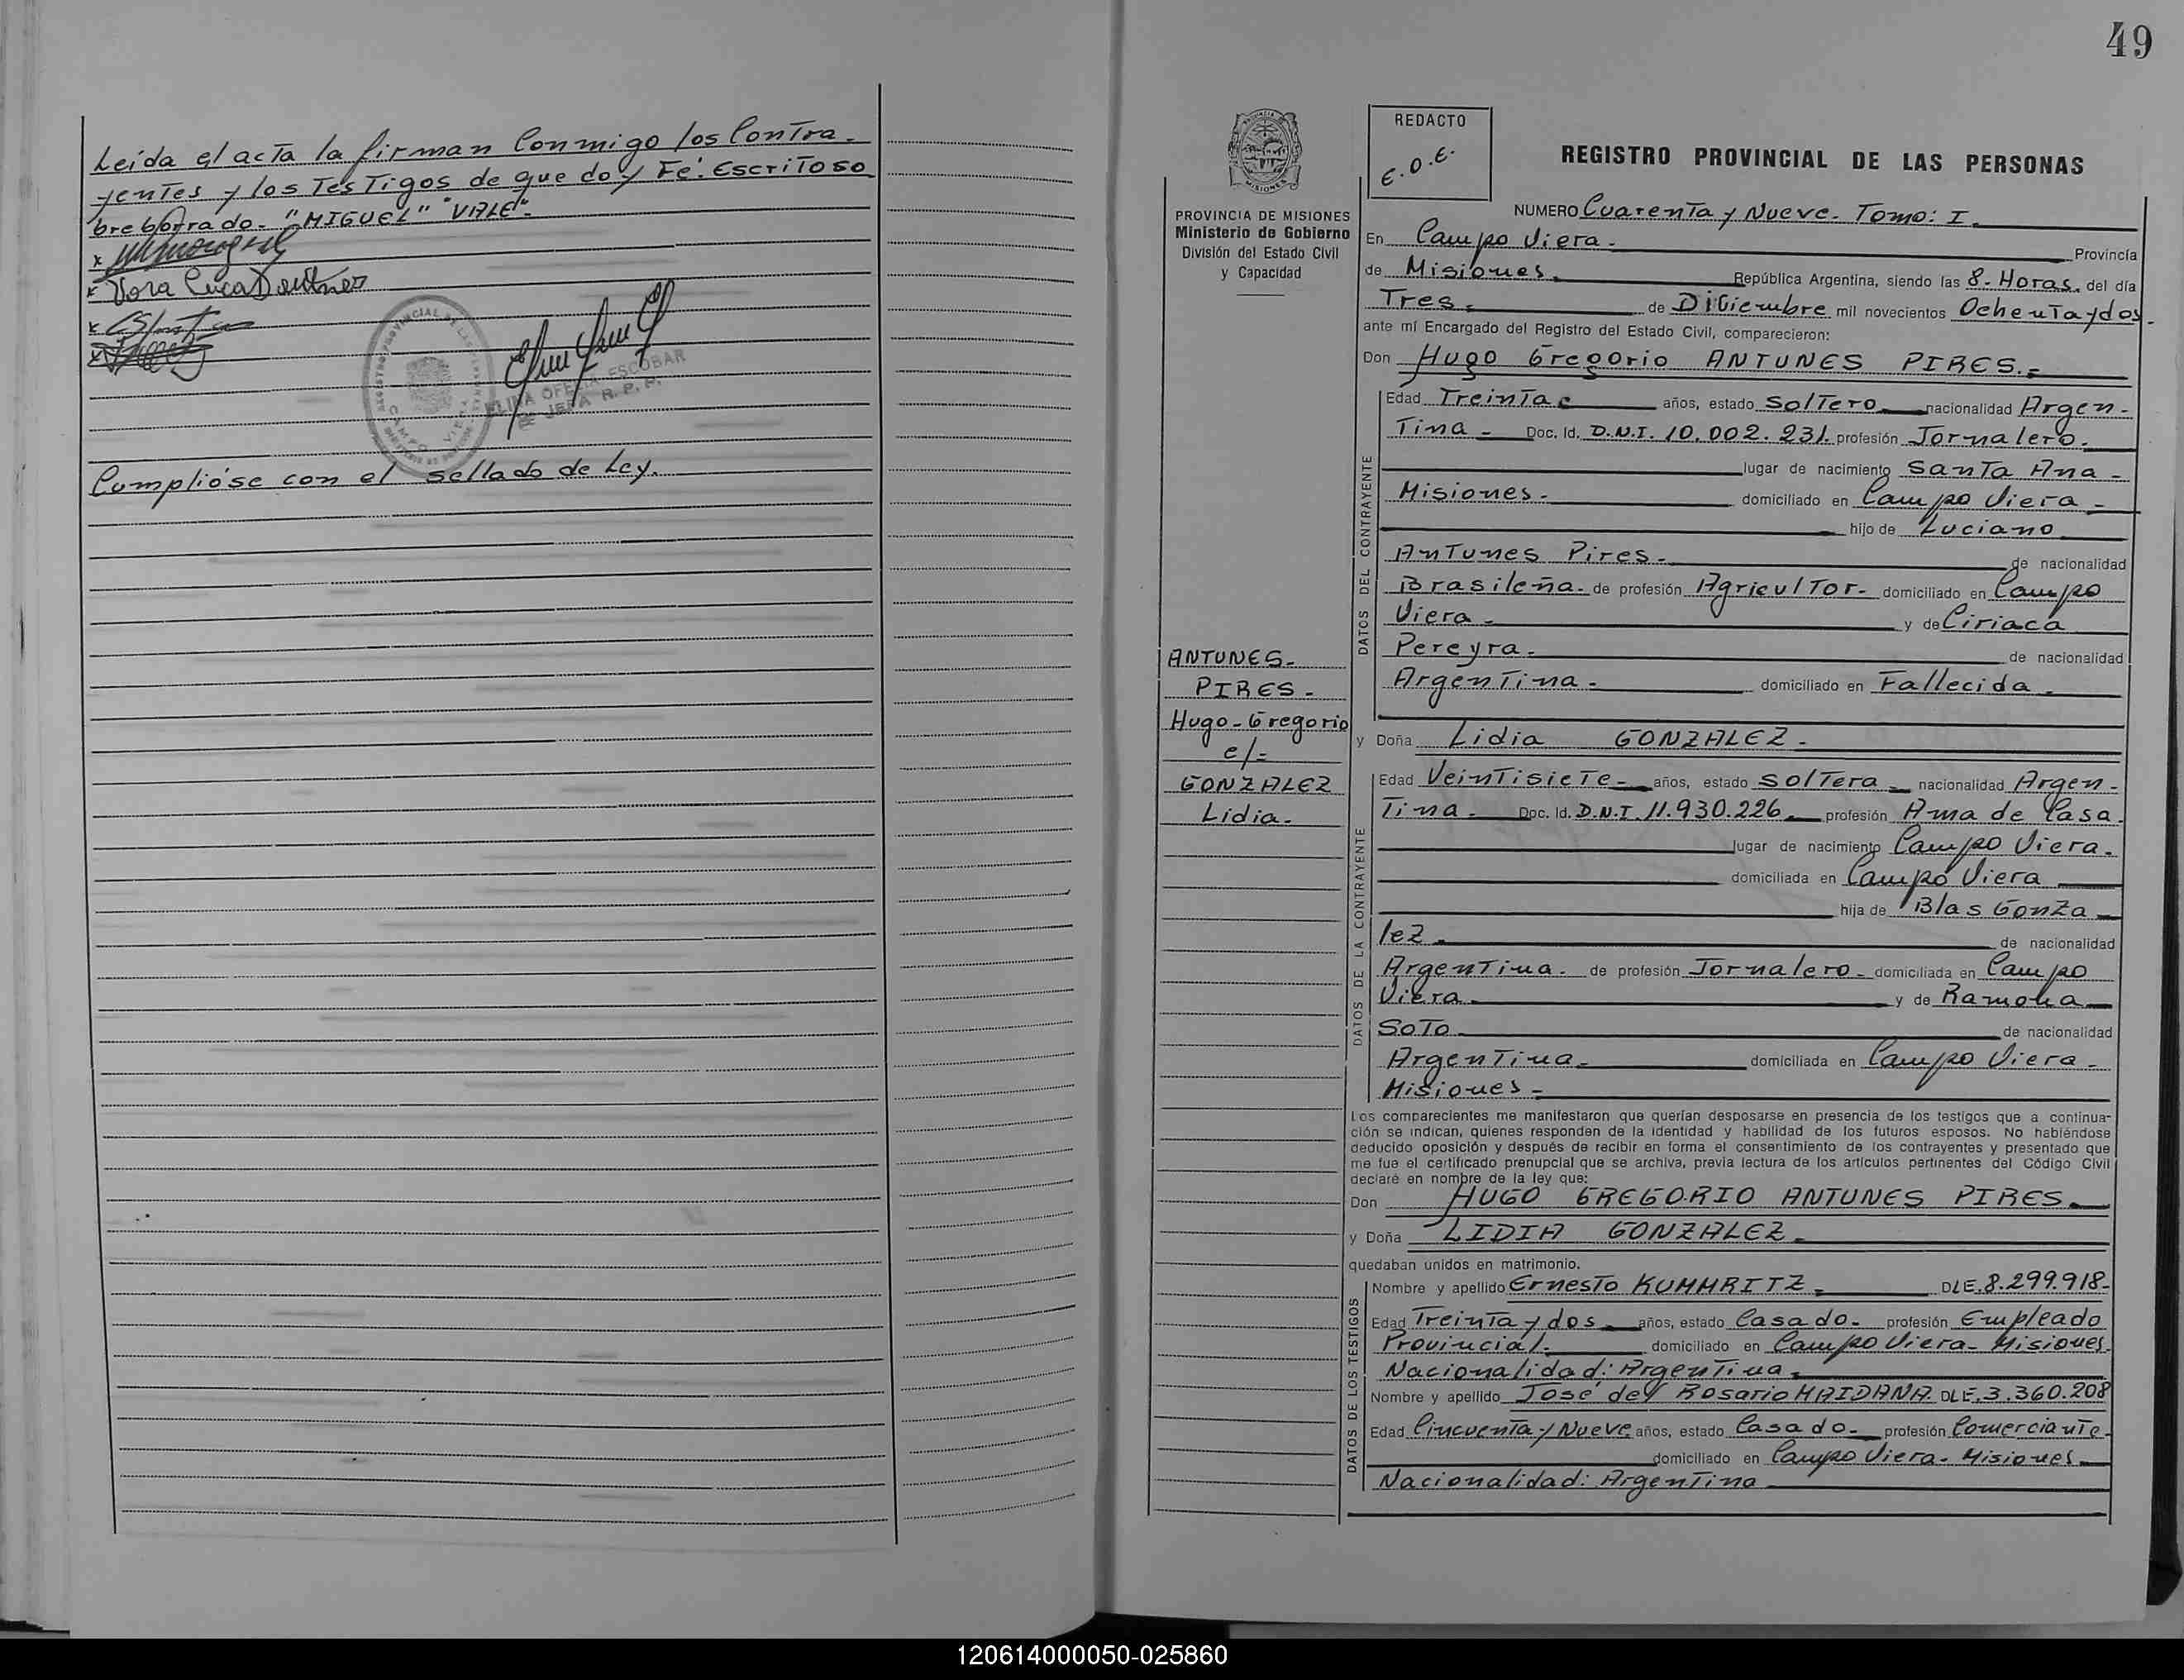 Leída el acta la firman Conmigo los Contra-
yentes y los Testigos de que doy Fé. Escritoso
breborrado- "MIGUEL" "VALE".
x
x Dora Luca Dorthner
x
x
REGISTRO PROVINCIAL DE LAS PERSONAS
CAMPO VIERA
ELINA OFELIA ESCOBAR
JEFA R. P. P.
Cumplióse con el sellado de Ley.
49
REDACTO
E.O.E.
REGISTRO PROVINCIAL DE LAS PERSONAS
PROVINCIA DE MISIONES
Ministerio de Gobierno
División del Estado Civil
y Capacidad
NUMERO Cuarenta y Nueve. Tomo: I.
En Campo Viera- Provincia
de Misiones. República Argentina, siendo las 8- Horas. del día
Tres. de Diciembre mil novecientos Ochenta y dos.
ante mí Encargado del Registro del Estado Civil, comparecieron:
Don Hugo Gregorio ANTUNES PIRES.=
DATOS DEL CONTRAYENTE
Edad Treinta años, estado Soltero nacionalidad Argen-
tina- Doc. Id. D.N.I. 10.002.231. profesión Jornalero.
lugar de nacimiento Santa Ana-
Misiones- domiciliado en Campo Viera-
hijo de Luciano
Antunes Pires- de nacionalidad
Brasileña- de profesión Agricultor- domiciliado en Campo
Viera- y de Ciriaca
Pereyra- de nacionalidad
Argentina- domiciliado en Fallecida.
ANTUNES-
PIRES-
Hugo-Gregorio
c/=
GONZALEZ
Lidia-
y Doña Lidia GONZALEZ-
DATOS DE LA CONTRAYENTE
Edad Veintisiete- años, estado Soltera nacionalidad Argen-
tina- Doc. Id. D.N.I. 11.930.226- profesión Ama de Casa.
lugar de nacimiento Campo Viera.
domiciliada en Campo Viera
hija de Blas Gonza
lez- de nacionalidad
Argentina- de profesión Jornalero- domiciliada en Campo
Viera- y de Ramona
Soto- de nacionalidad
Argentina- domiciliada en Campo Viera-
Misiones-
Los comparecientes me manifestaron que querían desposarse en presencia de los testigos que a continua-
ción se indican, quienes responden de la identidad y habilidad de los futuros esposos. No habiéndose
deducido oposición y después de recibir en forma el consentimiento de los contrayentes y presentado que
me fue el certificado prenupcial que se archiva, previa lectura de los artículos pertinentes del Código Civil
declaré en nombre de la ley que:
Don HUGO GREGORIO ANTUNES PIRES.
y Doña LIDIA GONZALEZ.
quedaban unidos en matrimonio.
DATOS DE LOS TESTIGOS
Nombre y apellido Ernesto KUMMRITZ- DLE.8.299.918-
Edad Treinta y dos años, estado Casado- profesión Empleado
Provincial- domiciliado en Campo Viera- Misiones.
Nacionalidad: Argentina.
Nombre y apellido José del Rosario MAIDANA. DLE.3.360.208
Edad Cincuenta y Nueve años, estado Casado- profesión Comerciante-
domiciliado en Campo Viera- Misiones
Nacionalidad: Argentina
120614000050-025860